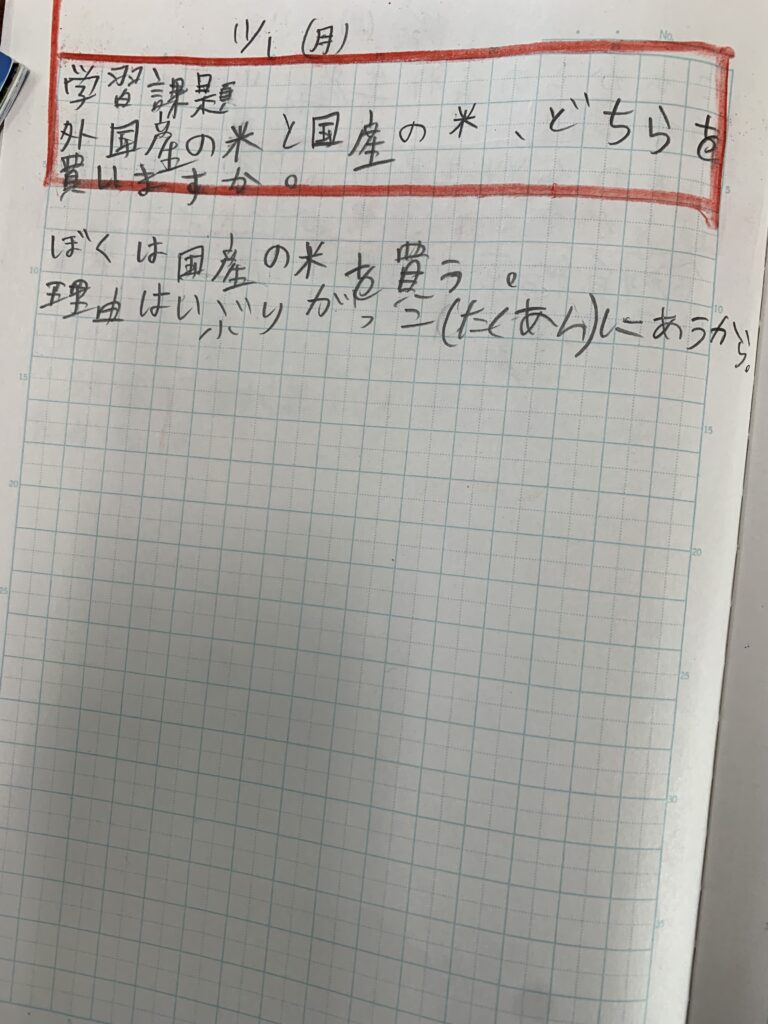 11/1 (月)
No.
学習課題
外国産の米と国産の米、どちらを
買いますか。
ぼくは国産の米を買う。
理由はいぶりがっこ(たくあん)にあうから。